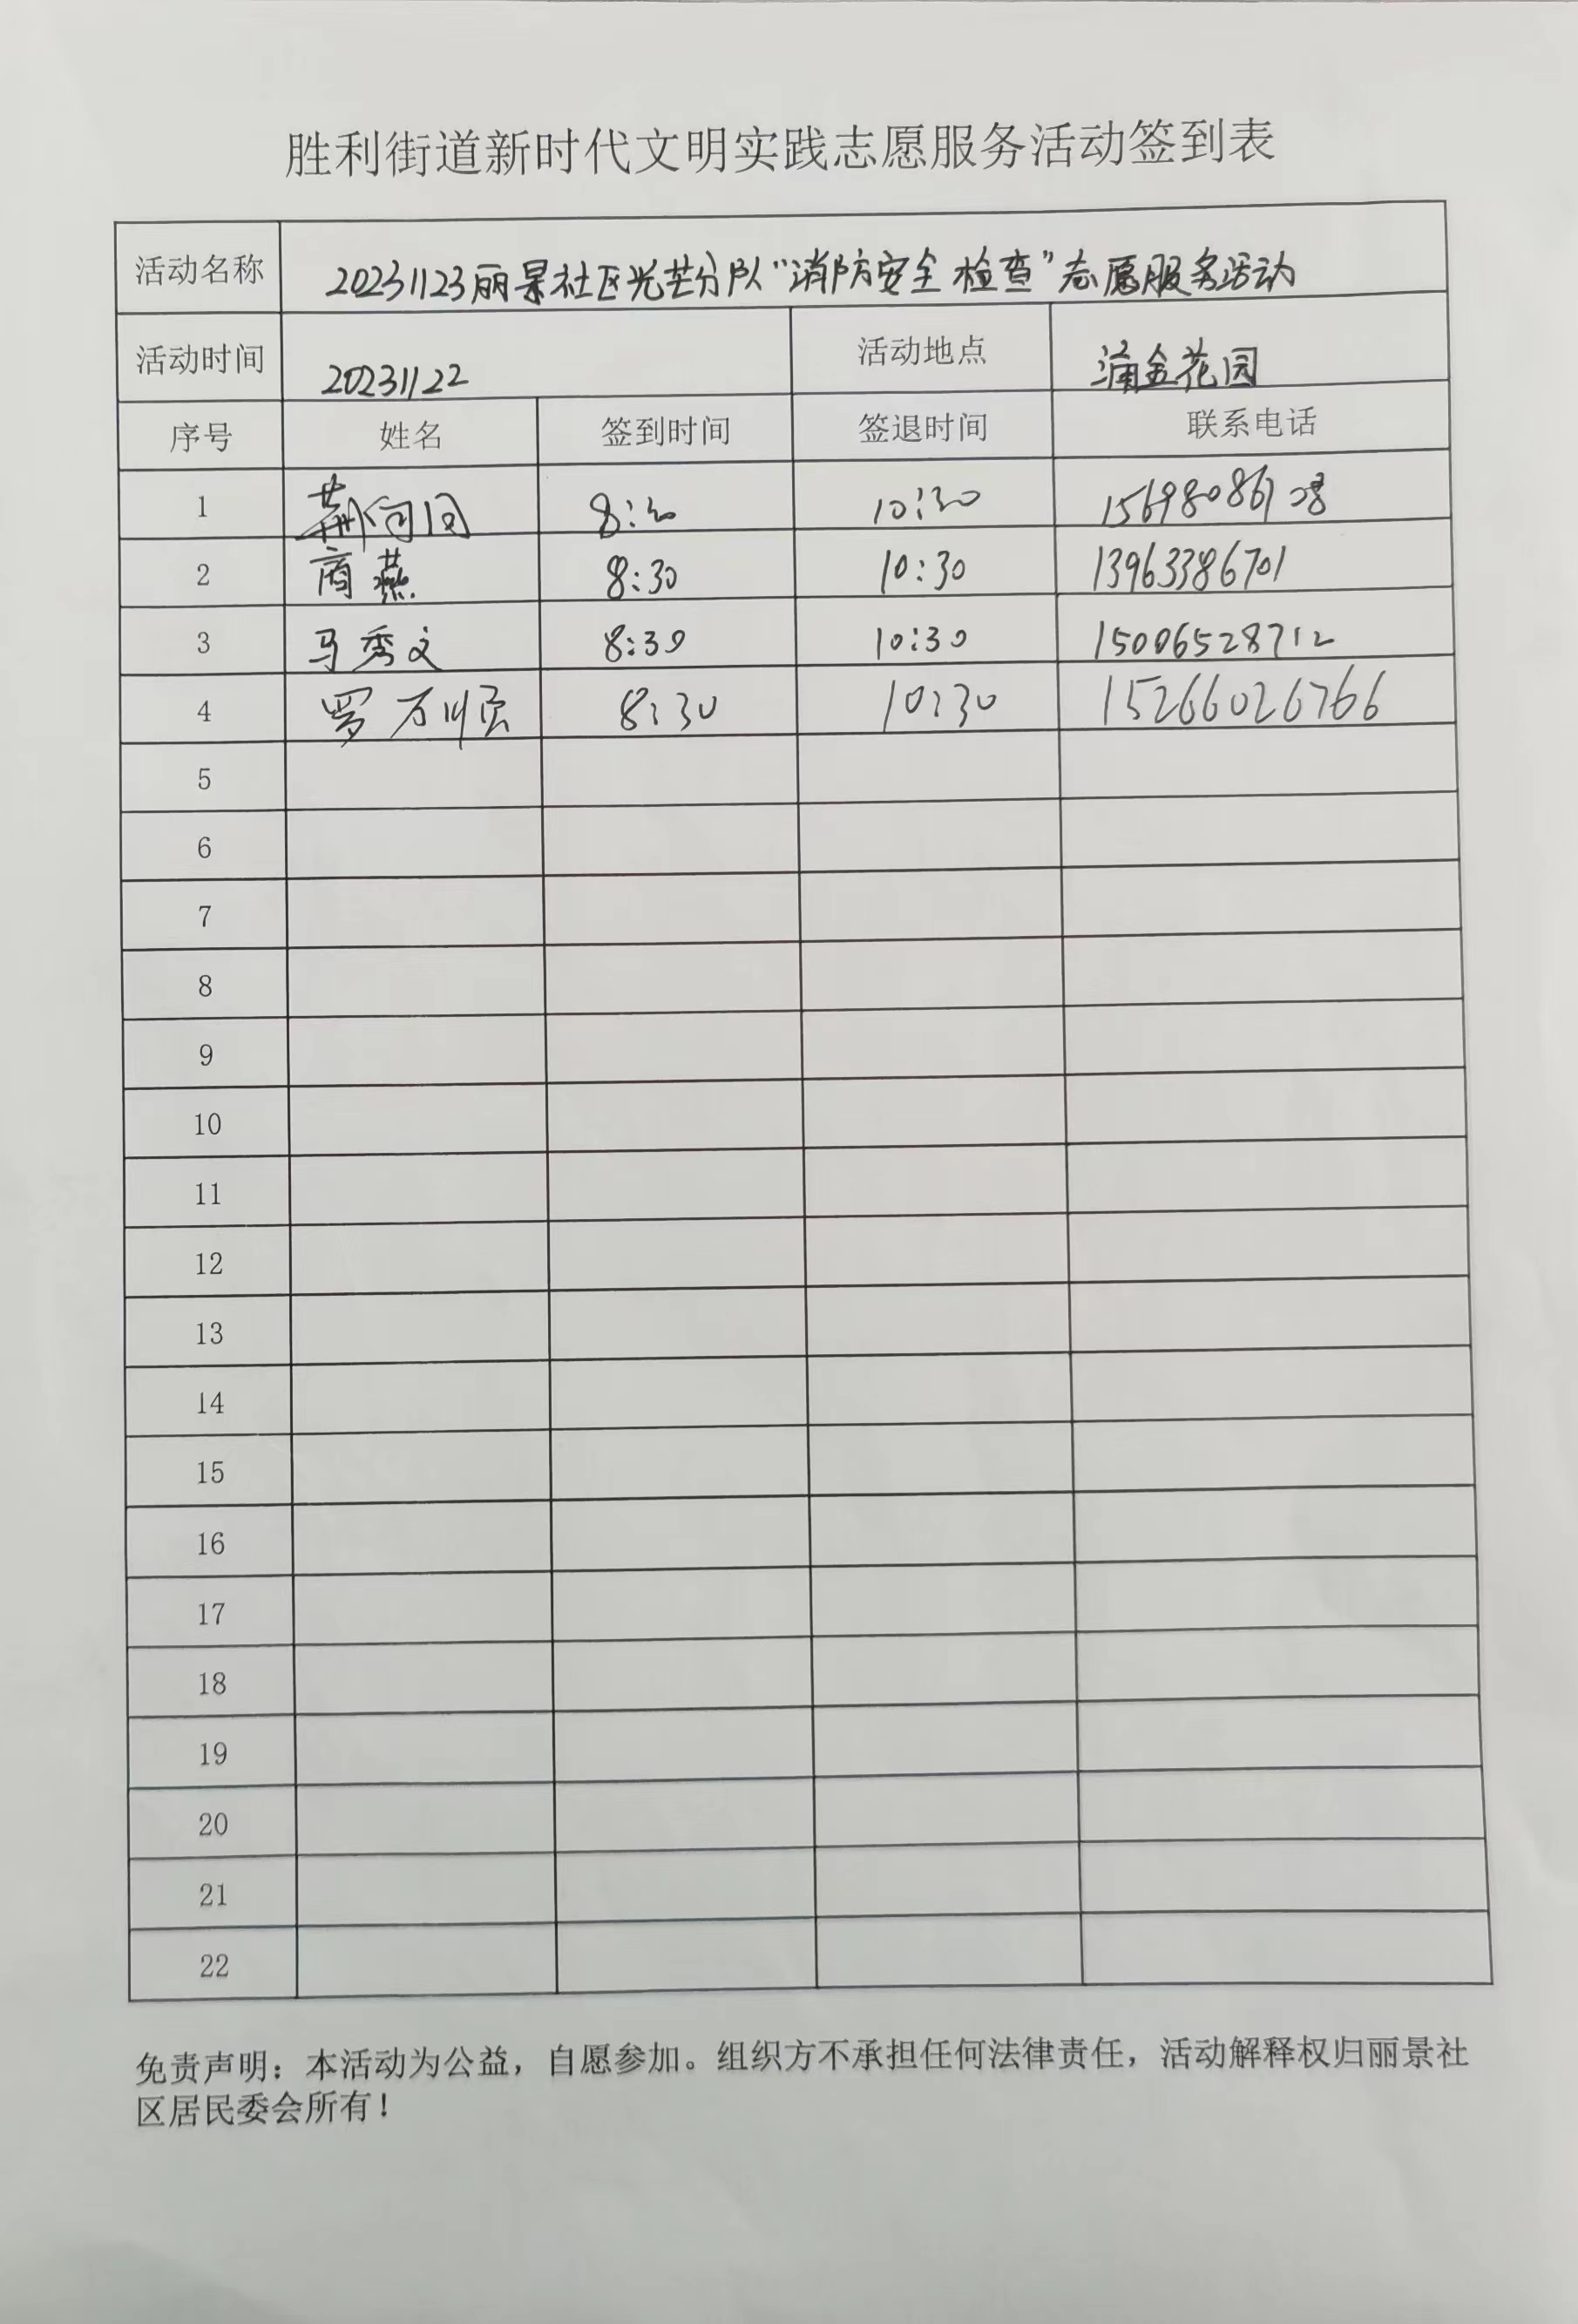 胜利街道新时代文明实践志愿服务活动签到表
活动名称 20231123丽景社区光芒分队“消防安全检查”志愿服务活动
活动时间 20231122 活动地点 浦金花园
序号 姓名 签到时间 签退时间 联系电话
1 8:30 10:30
2 商燕 8:30 10:30 13963386701
3 马秀文 8:30 10:30 15006528712
4 罗万顺 8:30 10:30 15266026766
5
6
7
8
9
10
11
12
13
14
15
16
17
18
19
20
21
22
免责声明：本活动为公益，自愿参加。组织方不承担任何法律责任，活动解释权归丽景社
区居民委会所有！